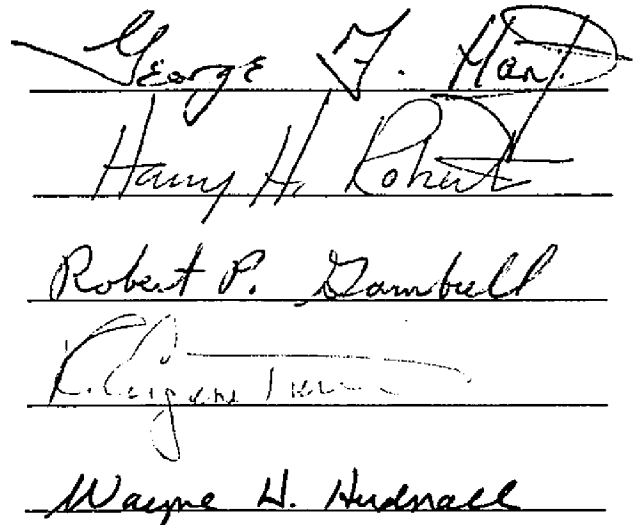 George F. Hart
Harry H. Robert
Robert P. Gambell
K. Eugene
Wayne H. Hudnall